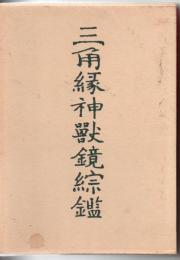 三角縁神獸鏡綜鑑